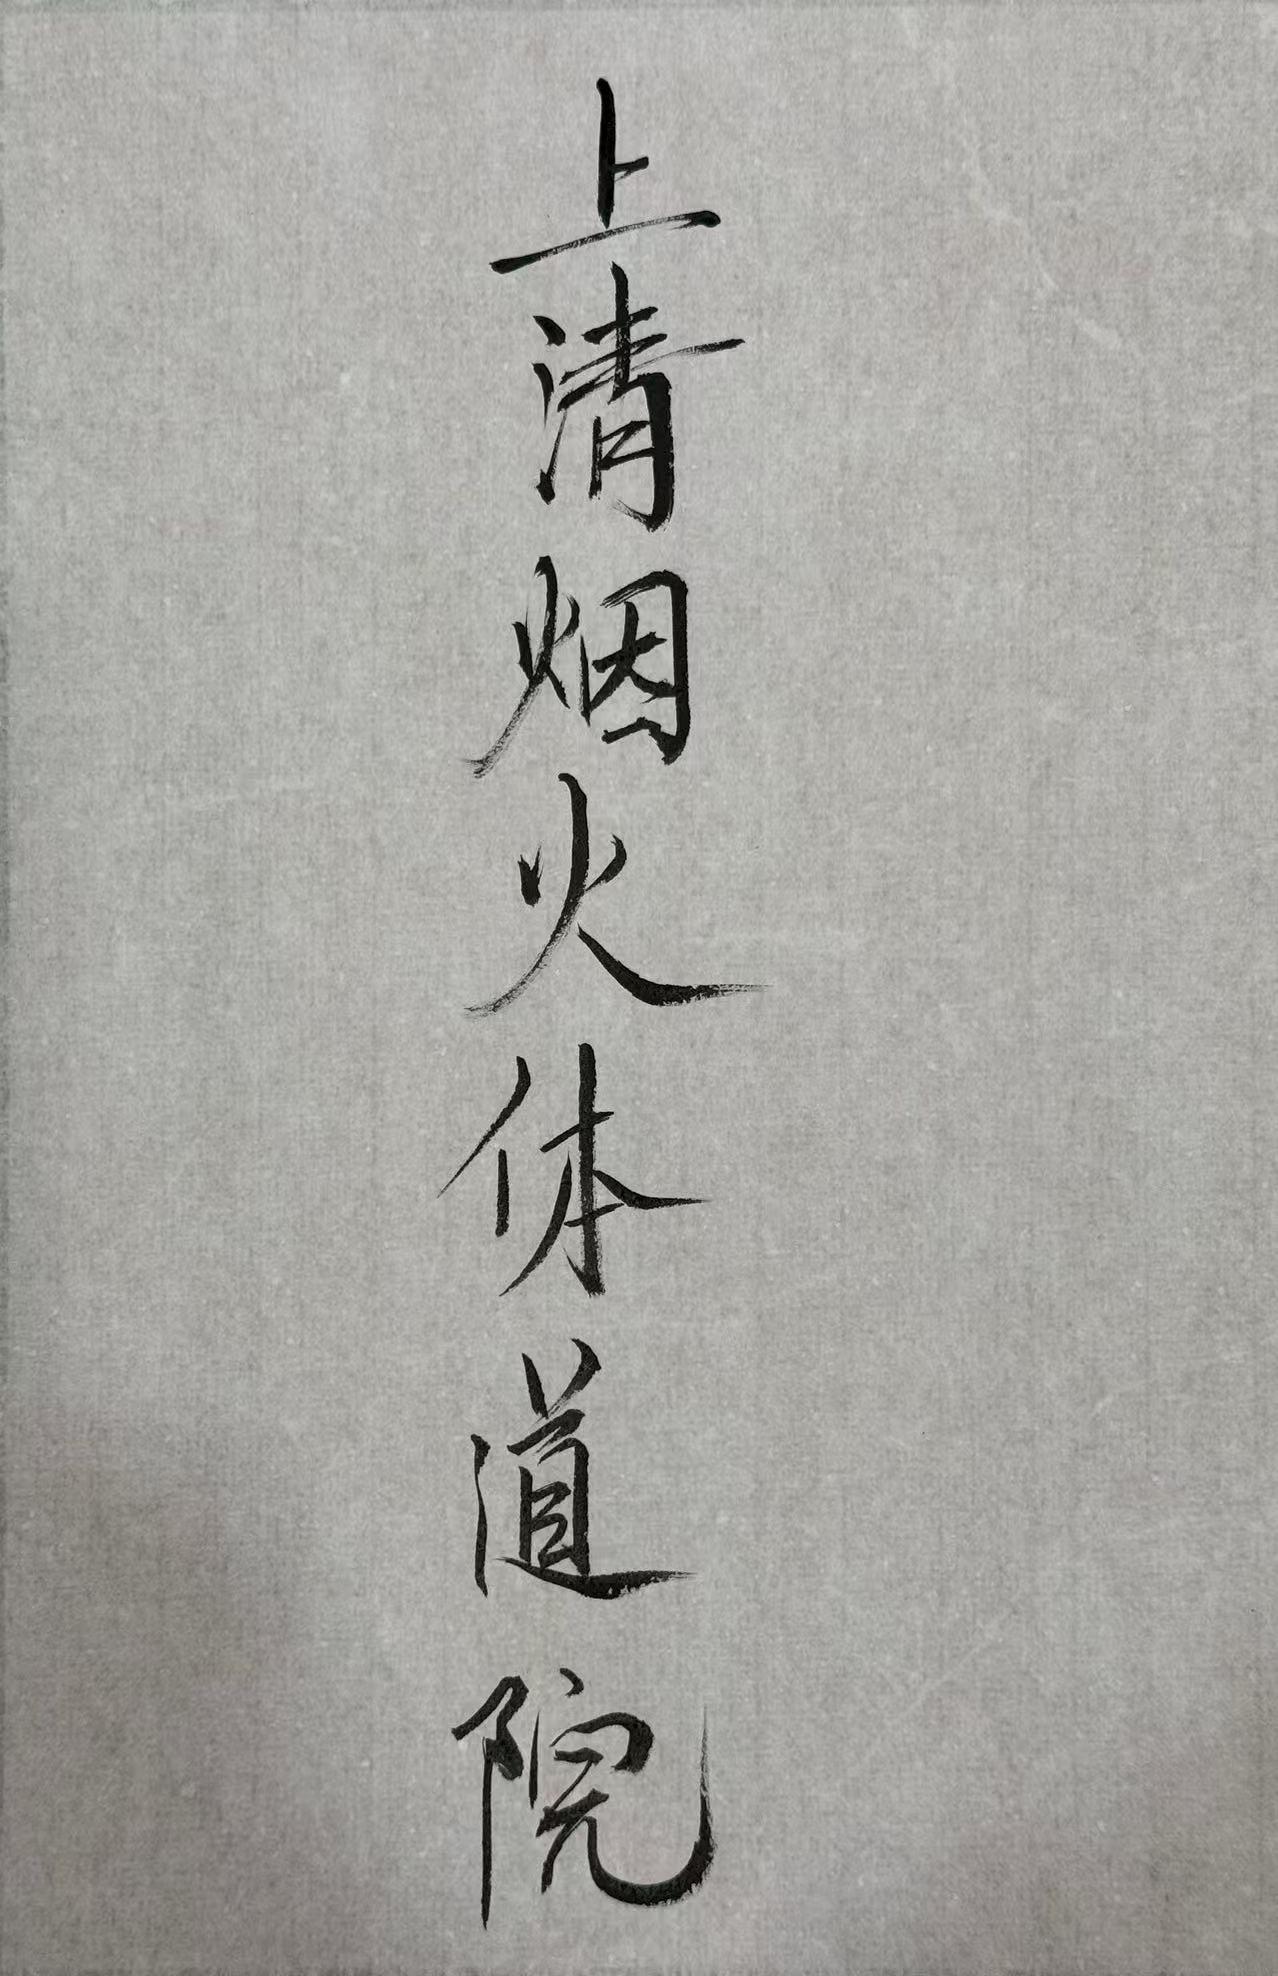 上清烟火体道院